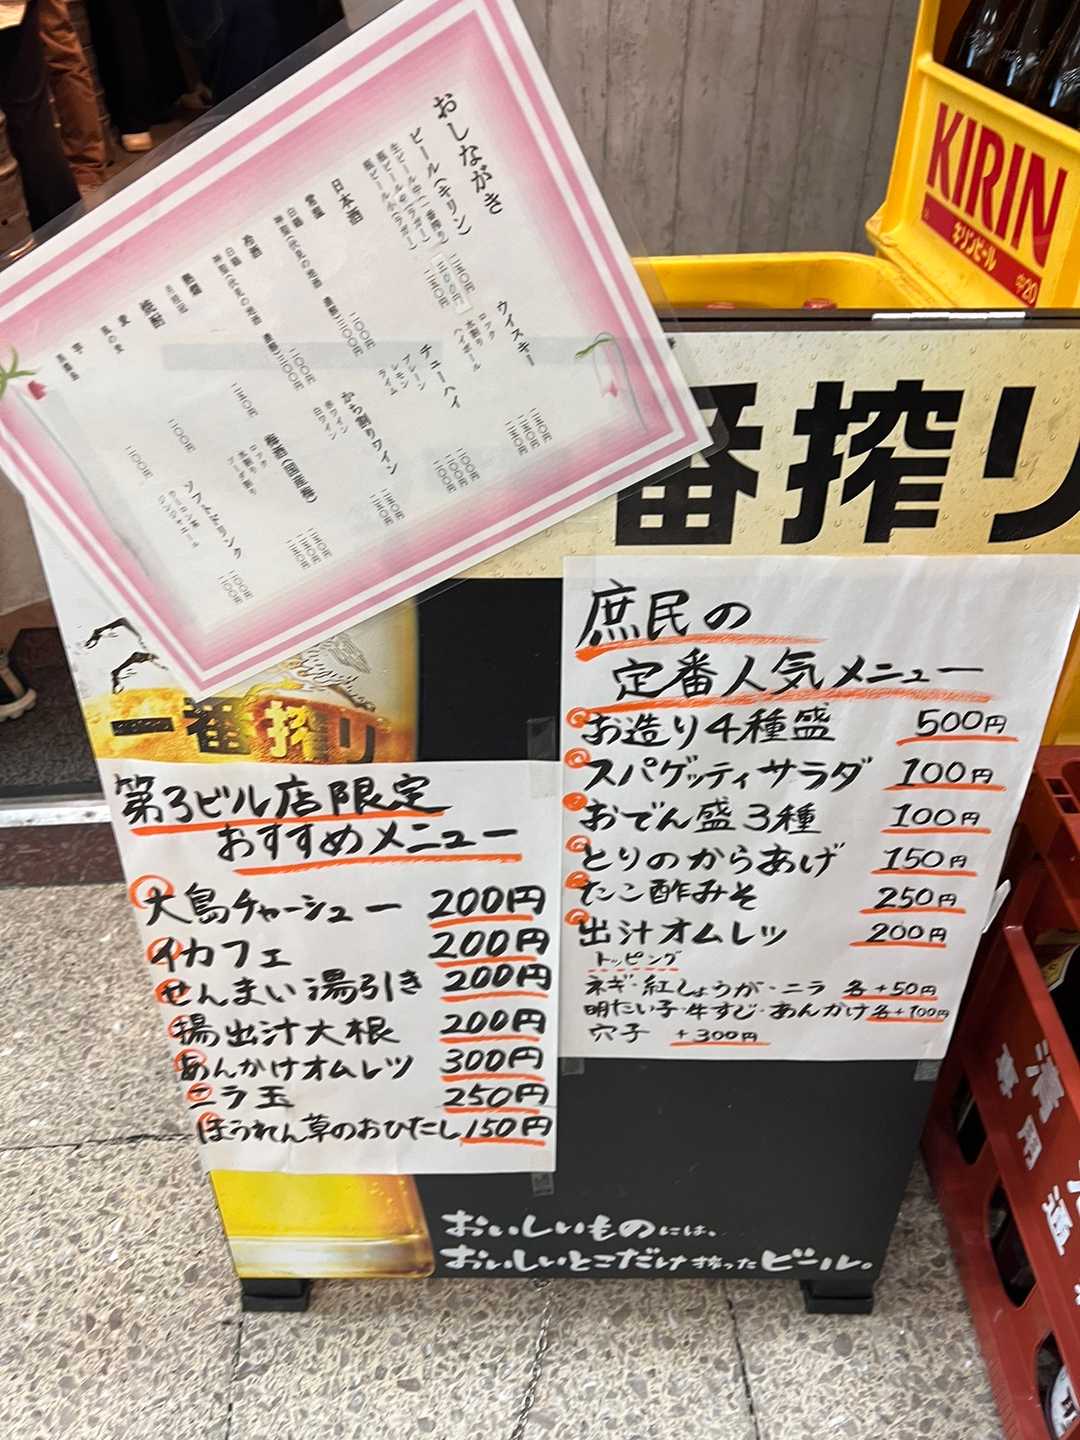 おしながき
ビール(キリン)
生ビール中(一番搾り)
瓶ビール中(ラガー)
瓶ビール小(ラガー)
日本酒
常温
冷酒
熱燗
焼酎
麦
芋
ウイスキー
ロック
水割り
ハイボール
チューハイ
プレーン
レモン
ライム
かち割りワイン
赤ワイン
白ワイン
梅酒(国産梅)
ソフトドリンク
KIRIN
キリンビール
中20
一番搾り
一番搾り
庶民の
定番人気メニュー
お造り4種盛 500円
スパゲッティサラダ 100円
おでん盛3種 100円
とりのからあげ 150円
たこ酢みそ 250円
出汁オムレツ 200円
トッピング
ネギ・紅しょうが・ニラ 各+50円
明たい子・牛すじ・あんかけ各+100円
穴子 +300円
第3ビル店限定
おすすめメニュー
大島チャーシュー 200円
イカフェ 200円
せんまい湯引き 200円
揚出汁大根 200円
あんかけオムレツ 300円
ニラ玉 250円
ほうれん草のおひたし150円
おいしいものには、
おいしいとこだけ搾ったビール。